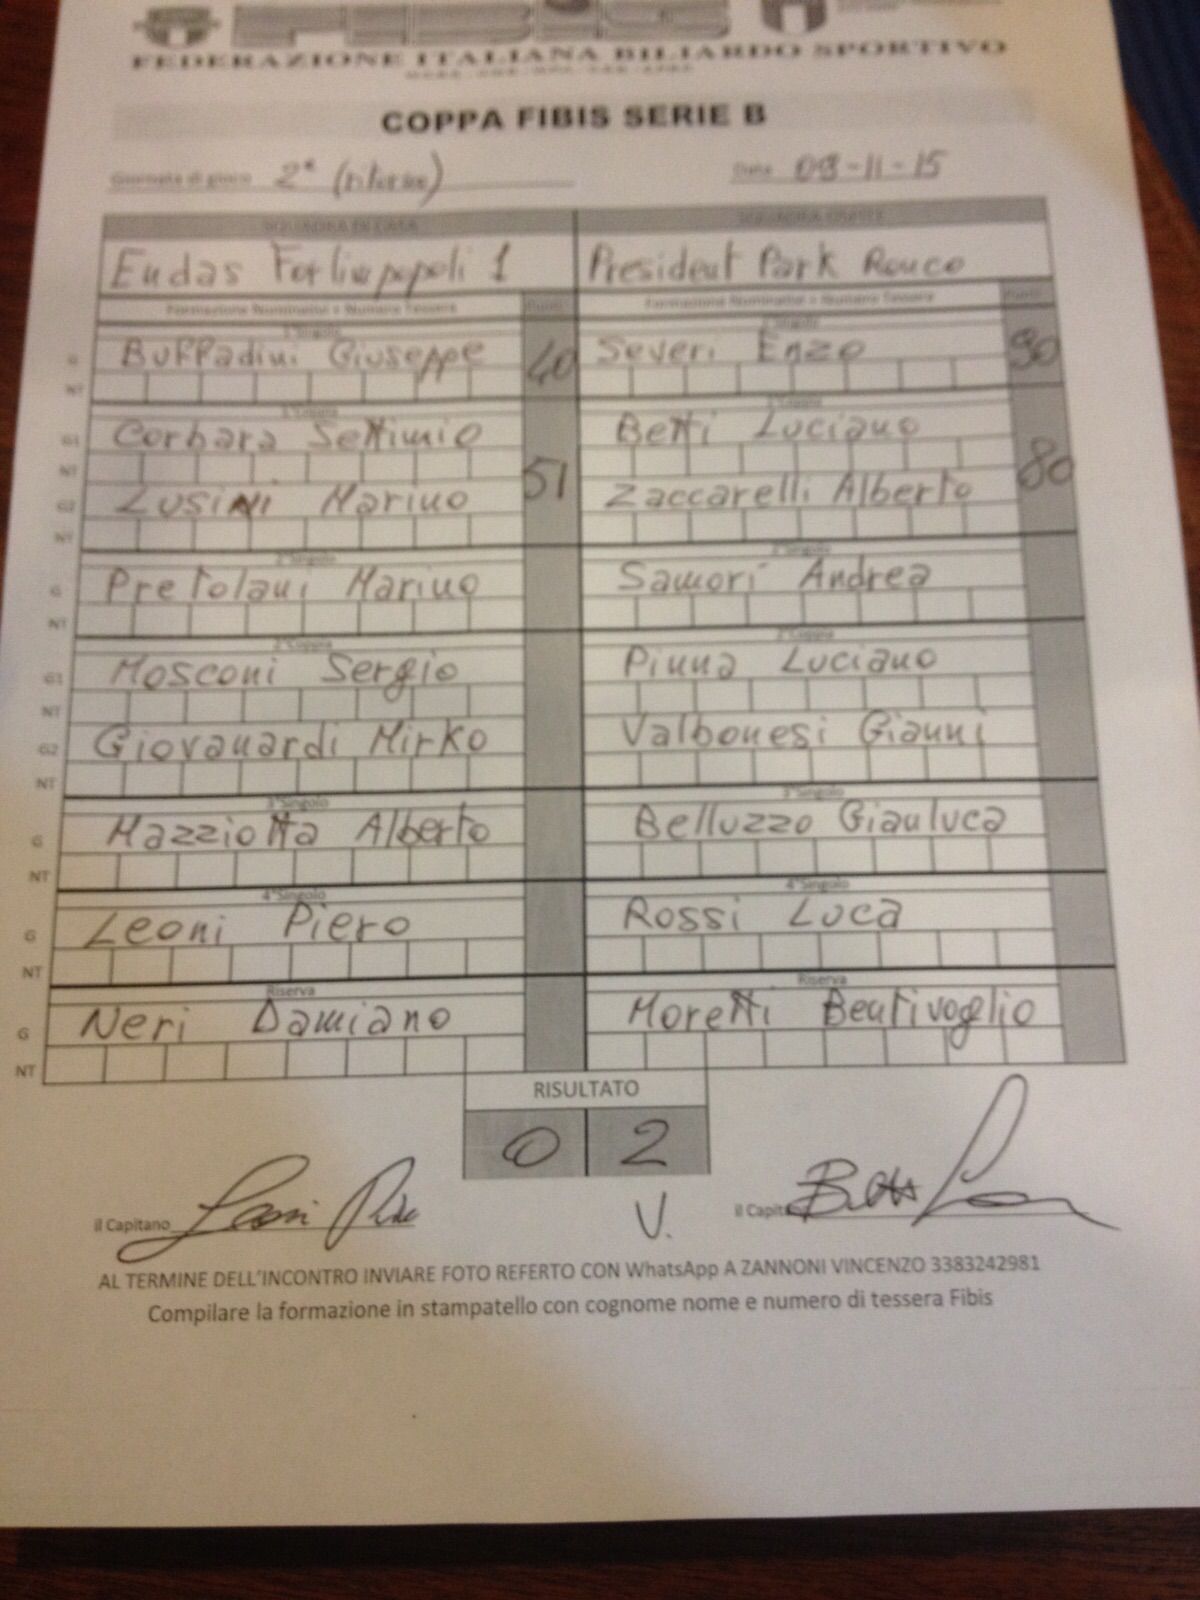 FIBIS
FEDERAZIONE ITALIANA BILIARDO SPORTIVO
COPPA FIBIS SERIE B
Giornata di gioco 2ª (ritorno) Data 09-11-15
SQUADRA DI CASA SQUADRA OSPITE
Endas Forlimpopoli 1 President Park Ronco
Formazione Nominativi e Numero Tessera Punti Formazione Nominativi e Numero Tessera Punti
1°Singolo 1°Singolo
G Buffadini Giuseppe 40 Severi Enzo 90
NT
1°Coppia 1°Coppia
G1 Corbara Settimio Betti Luciano
NT 51 80
G2 Lusini Marino Zaccarelli Alberto
NT
2°Singolo 2°Singolo
G Pretolani Marino Samorí Andrea
NT
2°Coppia 2°Coppia
G1 Mosconi Sergio Pinna Luciano
NT
G2 Giovanardi Mirko Valbonesi Gianni
NT
3°Singolo 3°Singolo
G Mazziotta Alberto Belluzzo Gianluca
NT
4°Singolo 4°Singolo
G Leoni Piero Rossi Luca
NT
Riserva Riserva
G Neri Damiano Moretti Bentivoglio
NT
RISULTATO
0 2
il Capitano V. il Capitano
AL TERMINE DELL'INCONTRO INVIARE FOTO REFERTO CON WhatsApp A ZANNONI VINCENZO 3383242981
Compilare la formazione in stampatello con cognome nome e numero di tessera Fibis